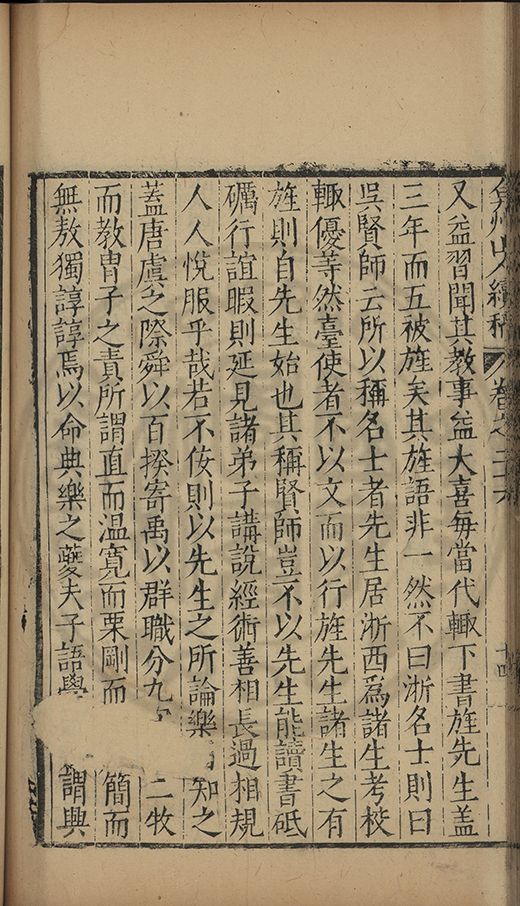 弇州山人續稿 卷之二十六 十四
又益習聞其教事益大喜每當代輙下書旌先生蓋
三年而五被旌矣其旌語非一然不曰浙名士則曰
吳賢師云所以稱名士者先生居浙西爲諸生考校
輙優等然臺使者不以文而以行旌先生諸生之有
旌則自先生始也其稱賢師豈不以先生能讀書砥
礪行誼暇則延見諸弟子講說經術善相長過相規
人人悅服乎哉若不佞則以先生之所論樂 知之
蓋唐虞之際舜以百揆寄禹以群職分九 二牧
而教冑子之責所謂直而溫寬而栗剛而 簡而
無敖獨諄諄焉以命典樂之夔夫子語學 謂興